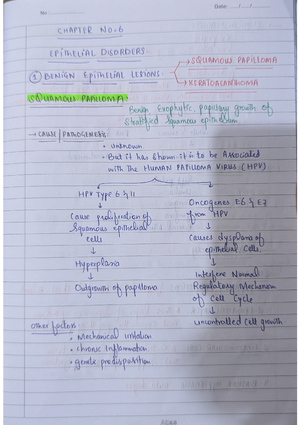 No.
Date / /
CHAPTER NO:6
EPITHELIAL DISORDERS
① BENIGN Epithelial LESIONS
→ SQUAMOUS PAPILLOMA
→ KERATOACANTHOMA
SQUAMOUS PAPILLOMA
Benign Exophytic, papillary growth of
stratified squamous epithelium.
→ CAUSE / PATHOGENESIS
• unknown
• But it has shown it is to be Associated
with the HUMAN PAPILLOMA VIRUS (HPV)
HPV Type 6 & 11
↓
Cause proliferation of
squamous epithelial
cells
↓
Hyperplasia
↓
Outgrowth of papilloma
Oncogenes E6 & E7
from HPV
↓
Causes dysplasia of
epithelial cells
↓
Interfere Normal
Regulatory Mechanism
of Cell Cycle
↓
uncontrolled Cell growth
Other factors
• Mechanical irritation
• chronic inflammation
• genetic predisposition